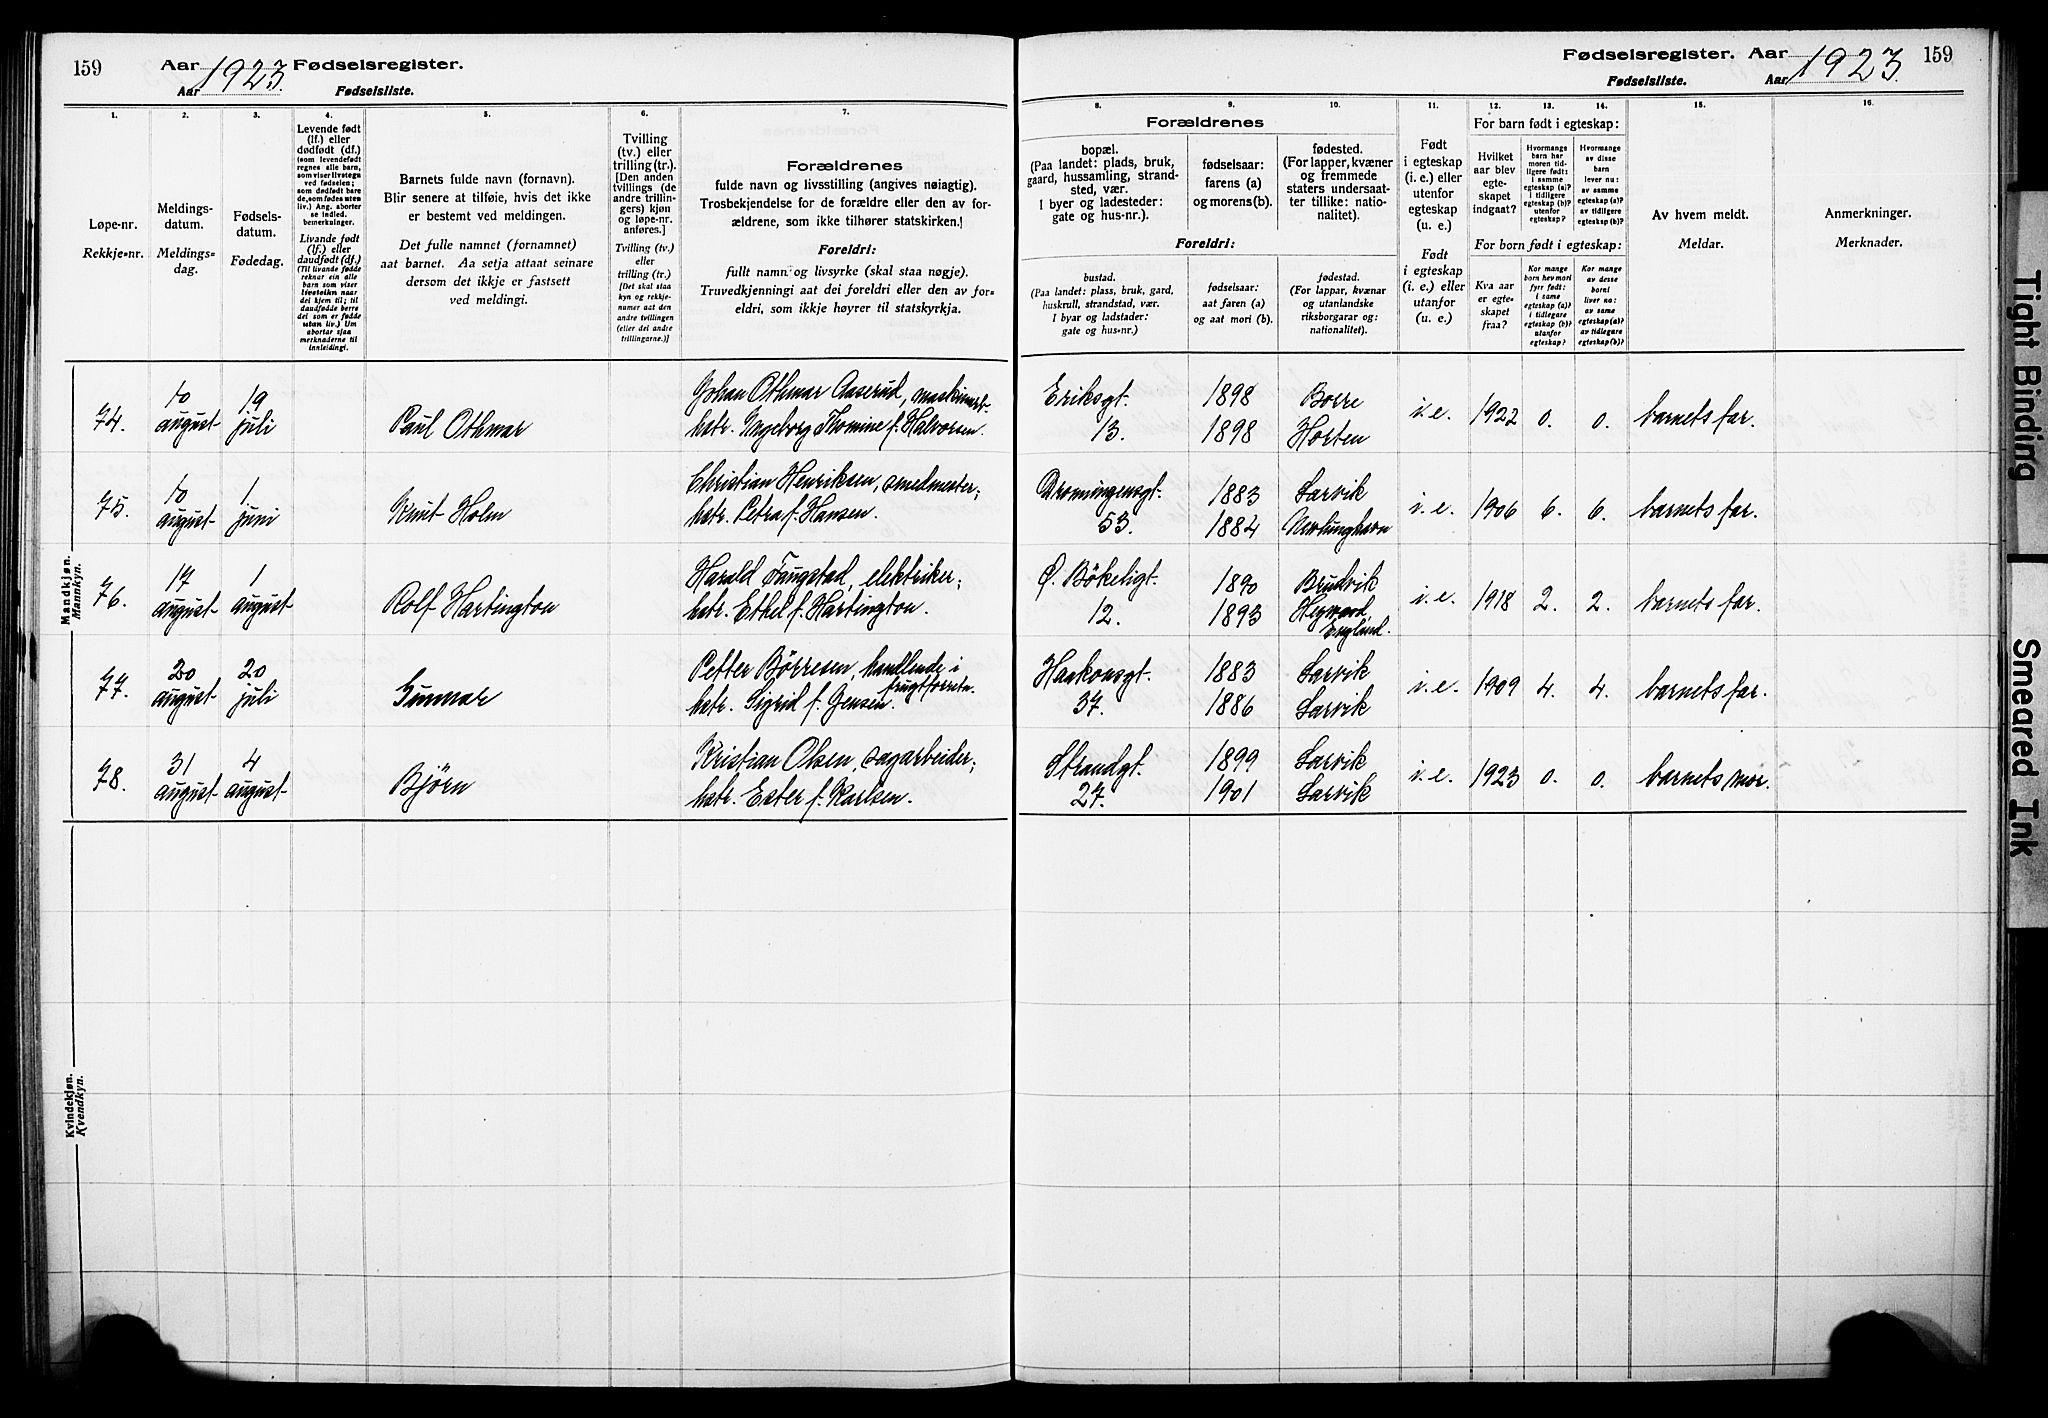 159
Aar 1923 Fødselsregister.
Aar Fødselsliste.
1.
2.
3.
4.
5.
6.
7.
Løpe-nr.
Rekkje-nr.
Meldings-
datum.
Meldings-
dag.
Fødsels-
datum.
Fødedag.
Levende født
(lf.) eller
dødfødt (df.)
(som levendefødt
regnes alle barn,
som viser livstegn
ved fødselen;
som dødfødt bare
de, som fødes uten
liv.) Ang. aborter
se indled.
bemerkninger.
Livande født
(lf.) eller
daudfødt (df.)
(Til livande fødde
reknar ein alle
barn som viser
livsteikn naar
dei kjem til; til
daudfødde berre
dei som er fødde
utan liv.) Um
abortar sjaa
merknaderne til
innleidingi.
Barnets fulde navn (fornavn).
Blir senere at tilføie, hvis det ikke
er bestemt ved meldingen.
Det fulle namnet (fornamnet)
aat barnet. Aa setja attaat seinare
dersom det ikkje er fastsett
ved meldingi.
Tvilling
(tv.) eller
trilling (tr.).
[Den anden
tvillings (de
andre trillin-
gers) kjøn
og løpe-nr.
anføres.]
Tvilling (tv.)
eller
trilling (tr.)
[Det skal staa
kyn og rekkje-
numer aat den
andre tvillingen
(eller dei andre
trillingarne.)]
Forældrenes
fulde navn og livsstilling (angives nøiagtig).
Trosbekjendelse for de forældre eller den av for-
ældrene, som ikke tilhører statskirken.
Foreldri:
fullt namn og livsyrke (skal staa nøgje).
Truvedkjenningi aat dei foreldri eller den av for-
eldri, som ikkje høyrer til statskyrkja.
Mandkjøn.
Mannkyn.
74.
10
august
19
juli
Paul Othmar
Johan Othmar Aaserud, maskinarb.
hstr. Ingeborg Thomine f. Halvorsen.
75.
10
august
1
juni
Knut Holm
Christian Henriksen, smedmester;
hstr. Petra f. Hansen.
76.
17
august
1
august
Rolf Hartington
Harald Faugstad, elektriker;
hstr. Ethel f. Hartington.
77.
20
august
20
juli
Gunnar
Petter Børresen, handlende i
frugtforretn.
hstr. Sigrid f. Jensen.
78.
31
august
4
august
Bjørn
Kristian Olsen, sagarbeider;
hstr. Ester f. Karlsen.
Kvindekjøn.
Kvendkyn.
Fødselsregister. Aar 1923 159
Fødselsliste. Aar
8.
9.
10.
11.
12.
13.
14.
15.
16.
Forældrenes
bopæl.
(Paa landet: plads, bruk,
gaard, hussamling, strand-
sted, vær.
I byer og ladesteder:
gate og hus-nr.).
fødselsaar:
farens (a)
og morens (b).
fødested.
(For lapper, kvæner
og fremmede
staters undersaat-
ter tillike: natio-
nalitet).
Foreldri:
bustad.
(Paa landet: plass, bruk, gard,
huskrull, strandstad, vær.
I byar og ladstader:
gate og hus-nr.)
fødselsaar:
aat faren (a)
og aat mori (b).
fødestad.
(For lappar, kvænar
og utanlandske
riksborgarar og:
nationalitet).
Født
i egteskap
(i. e.) eller
utenfor
egteskap
(u. e.)
Født
i egteskap
(i. e.) eller
utanfor
(u. e.)
For barn født i egteskap:
Hvilket
aar blev
egte-
skapet
indgaat?
Hvormange
barn har
moren tid-
ligere født:
i samme
egteskap (a)?
i tidligere
egteskap (b)?
utenfor
egteskap?
Hvormange
av disse
barn
lever nu:
av samme
egteskap (a)?
av tidligere
egteskap (b)?
For born født i egteskap:
Kva aar
er egte-
skapet
fraa?
Kor mange
born hev mori
fyrr født:
i same
egteskap (a)?
i tidlegare
egteskap (b)?
utanfor
egteskap?
Kor mange
av desse
borni
liver no:
av same
egteskap (a)?
av tidlegare
egteskap (b)?
Av hvem meldt.
Meldar.
Anmerkninger.
Merknader.
Eriksgt.
13.
1898
1898
Borre
Horten
i. e.
1922
0.
0.
barnets far.
Dronningensgt.
53.
1883
1884
Larvik
Nevlunghavn
i. e.
1906
6.
6.
barnets far.
Ø. Bökeligt.
12.
1890
1893
Brudvik
England.
i. e.
1918
2.
2.
barnets far.
Haakonsgt.
37.
1883
1886
Larvik
Larvik
i. e.
1909
4.
4.
barnets far.
Strandgt.
27.
1899
1901
Larvik
Larvik
i. e.
1923
0.
0.
barnets mor.
Tight Binding
Smeared Ink